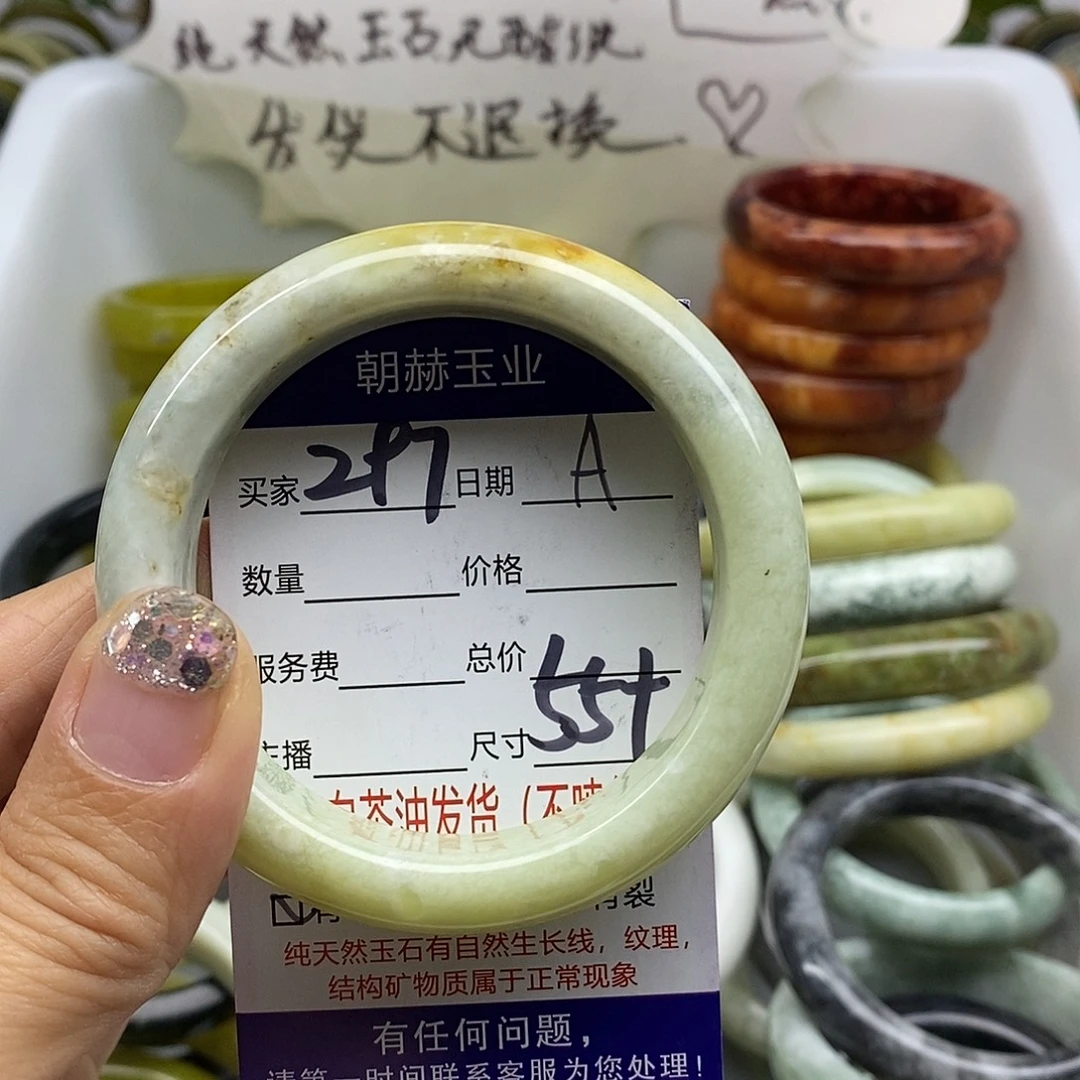 纯天然玉石无酸洗
售出不退换
朝赫玉业
买家 297 日期 A
数量 价格
服务费 总价
主播 尺寸 55+
白茶油发货（不
有裂
纯天然玉石有自然生长线，纹理，
结构矿物质属于正常现象
有任何问题，
请第一时间联系客服为您处理！